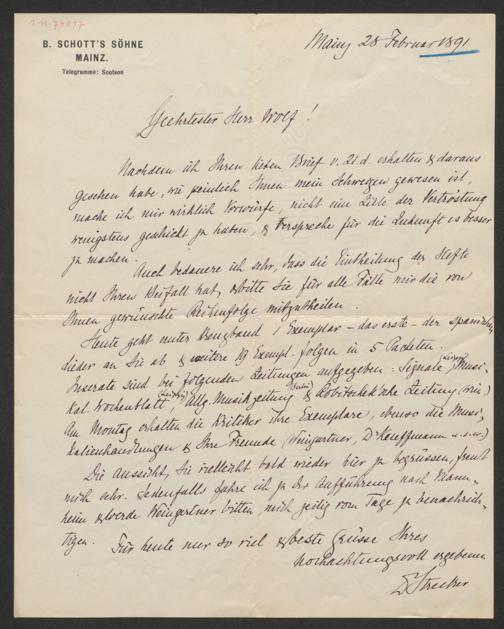 B. SCHOTT'S SÖHNE
MAINZ.
Telegramme: Scotson
Mainz 28 Februar 1891
Geehrtester Herr Wolf!
Nachdem ich Ihren lieben Brief v. 21. d. erhalten & daraus
gesehen habe, wie peinlich Ihnen mein Schweigen gewesen ist,
mache ich mir wirklich Vorwürfe, nicht eine Zeile der Vertröstung
wenigstens geschickt zu haben, & verspreche für die Zukunft es besser
zu machen.
Auch bedauere ich sehr, dass die Eintheilung der Hefte
nicht Ihren Beifall hat, & bitte Sie für alle Fälle mir die von
Ihnen gewünschte Reihenfolge mitzutheilen.
Heute geht unter Kreuzband 1 Exemplar – das erste – der spanischen
Lieder an Sie ab & weitere 19 Exempl. folgen in 5 Packeten.
Inserate sind bei folgenden Zeitungen aufgegeben: Signale, (Leipzig) Musi-
kal. Wochenblatt, (Leipzig) Allg. Musikzeitung (Berlin) & Zeitung (Wien)
Am Montag erhalten die Kritiker ihre Exemplare, ebenso die Musi-
kalienhandlungen & Ihre Freunde (Weingartner, Dr Kauffmann u.s.w.)
Die Aussicht, Sie vielleicht bald wieder hier zu begrüssen, freut
mich sehr. Jedenfalls fahre ich zu der Aufführung nach Mann-
heim & werde Weingartner bitten, mich zeitig vom Tage zu benachrich-
tigen.
Für heute nur so viel & beste Grüsse Ihres
hochachtungsvoll ergebenen
Strecker